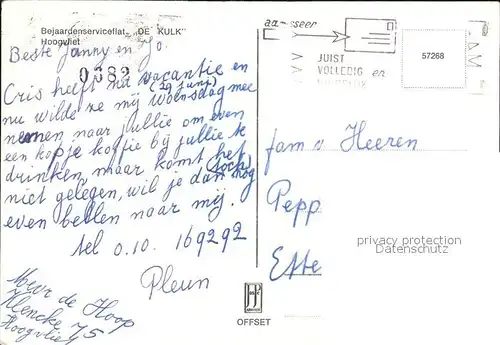 Bejaardenserviceflat „DE KULK"
Hoogvliet
Beste Janny en Jo.
0382
Cris heeft nu vacantie en
(29 juni)
nu wilde ze mij Woensdag mee
nemen naar jullie om even
een kopje koffie bij jullie te
drinken, maar komt het
niet gelegen, wil je dan
toch nog
even bellen naar mij.
tel 0.10. 169292
Pleun
Mevr de Hoop
Klencke 75
Hoogvliet
JUIST
VOLLEDIG en
57268
fam v Heeren
Pepp
Ette
privacy protection
Datenschutz
OFFSET